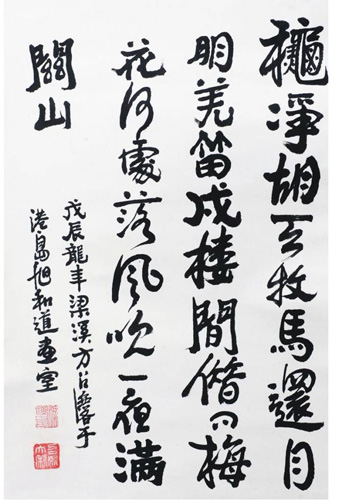 龝淨胡天牧馬還月
明羌笛戍樓間借問梅
花何處落風吹一夜滿
關山
戊辰龍年梁溪方召麐于
港島旭和道畫室